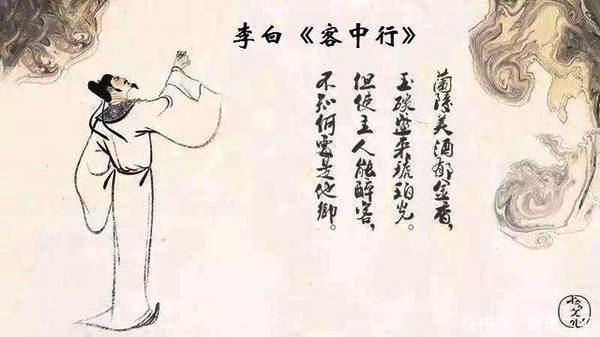 李白《客中行》
蘭陵美酒郁金香，
玉碗盛来琥珀光。
但使主人能醉客，
不知何處是他鄉。
快传号／娱乐